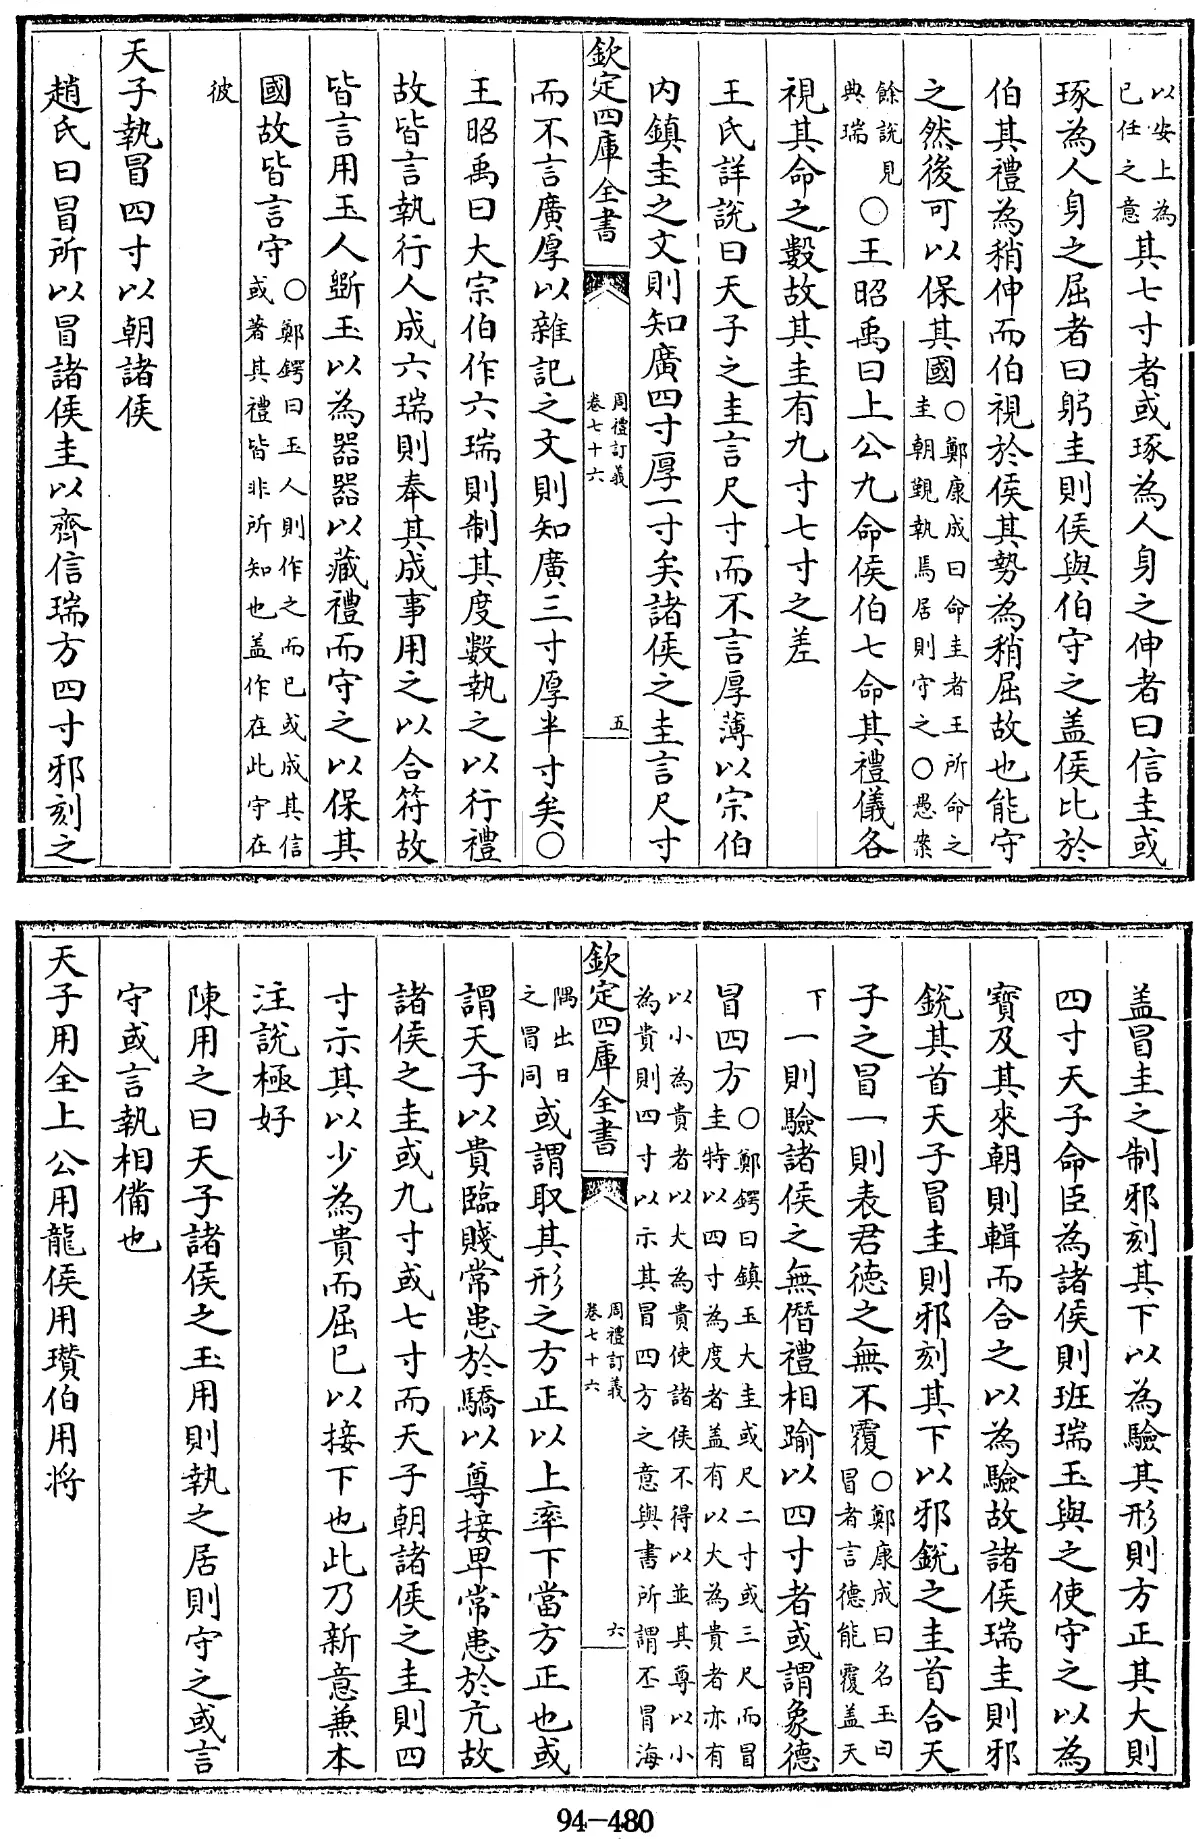 以安上為
已任之意其七寸者或琢為人身之伸者曰信圭或
琢為人身之屈者曰躬圭則侯與伯守之盖侯比於
伯其禮為稍伸而伯視於侯其勢為稍屈故也能守
之然後可以保其國○鄭康成曰命圭者王所命之
圭朝覲執焉居則守之○愚案
餘說見
典瑞○王昭禹曰上公九命侯伯七命其禮儀各
視其命之數故其圭有九寸七寸之差
王氏詳說曰天子之圭言尺寸而不言厚薄以宗伯
内鎮圭之文則知廣四寸厚一寸矣諸侯之圭言尺寸
欽定四庫全書 周禮訂義卷七十六 五
而不言廣厚以雜記之文則知廣三寸厚半寸矣○
王昭禹曰大宗伯作六瑞則制其度數執之以行禮
故皆言執行人成六瑞則奉其成事用之以合符故
皆言用玉人斵玉以為器器以藏禮而守之以保其
國故皆言守○鄭鍔曰玉人則作之而已或成其信
或著其禮皆非所知也盖作在此守在
彼
天子執冒四寸以朝諸侯
趙氏曰冒所以冒諸侯圭以齊信瑞方四寸邪刻之
盖冒圭之制邪刻其下以為驗其形則方正其大則
四寸天子命臣為諸侯則班瑞玉與之使守之以為
寶及其來朝則輯而合之以為驗故諸侯瑞圭則邪
銳其首天子冒圭則邪刻其下以邪銳之圭首合天
子之冒一則表君德之無不覆○鄭康成曰名玉曰
冒者言德能覆盖天
下一則驗諸侯之無僭禮相踰以四寸者或謂象德
冒四方○鄭鍔曰鎮玉大圭或尺二寸或三尺而冒
圭特以四寸為度者盖有以大為貴者亦有
以小為貴者以大為貴使諸侯不得以並其尊以小
為貴則四寸以示其冒四方之意與書所謂丕冒海
欽定四庫全書 周禮訂義卷七十六 六
隅出日
之冒同或謂取其形之方正以上率下當方正也或
謂天子以貴臨賤常患於驕以尊接卑常患於亢故
諸侯之圭或九寸或七寸而天子朝諸侯之圭則四
寸示其以少為貴而屈已以接下也此乃新意兼本
注說極好
陳用之曰天子諸侯之玉用則執之居則守之或言
守或言執相備也
天子用全上公用龍侯用瓚伯用將
94-480